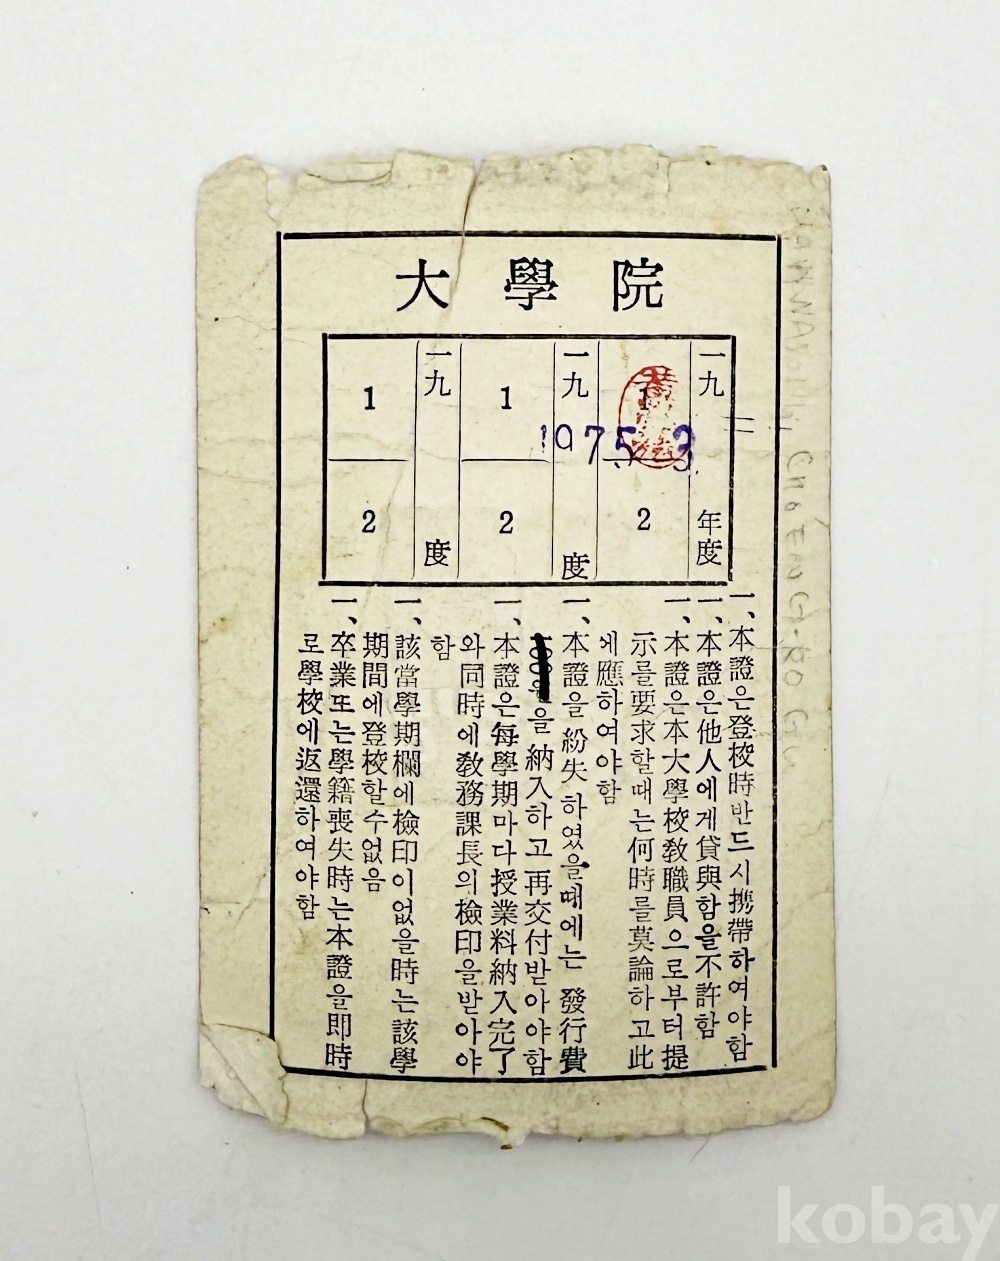 大學院
一九 年度
1
2
一九 度
1
2
一九 度
1
2
1975. 3.
一、本證은登校時반드시携帶하여야함
一、本證은他人에게貸與함을不許함
一、本證은本大學校敎職員으로부터提
示를要求할때는何時를莫論하고此
에應하여야함
一、本證을紛失하였을때에는 發行費
을納入하고再交付받아야함
一、本證은每學期마다授業料納入完了
와同時에敎務課長의檢印을받아야
함
一、該當學期欄에檢印이없을時는該學
期間에登校할수없음
一、卒業또는學籍喪失時는本證을即時
로學校에返還하여야함
CHOENG-RO GU
kobay